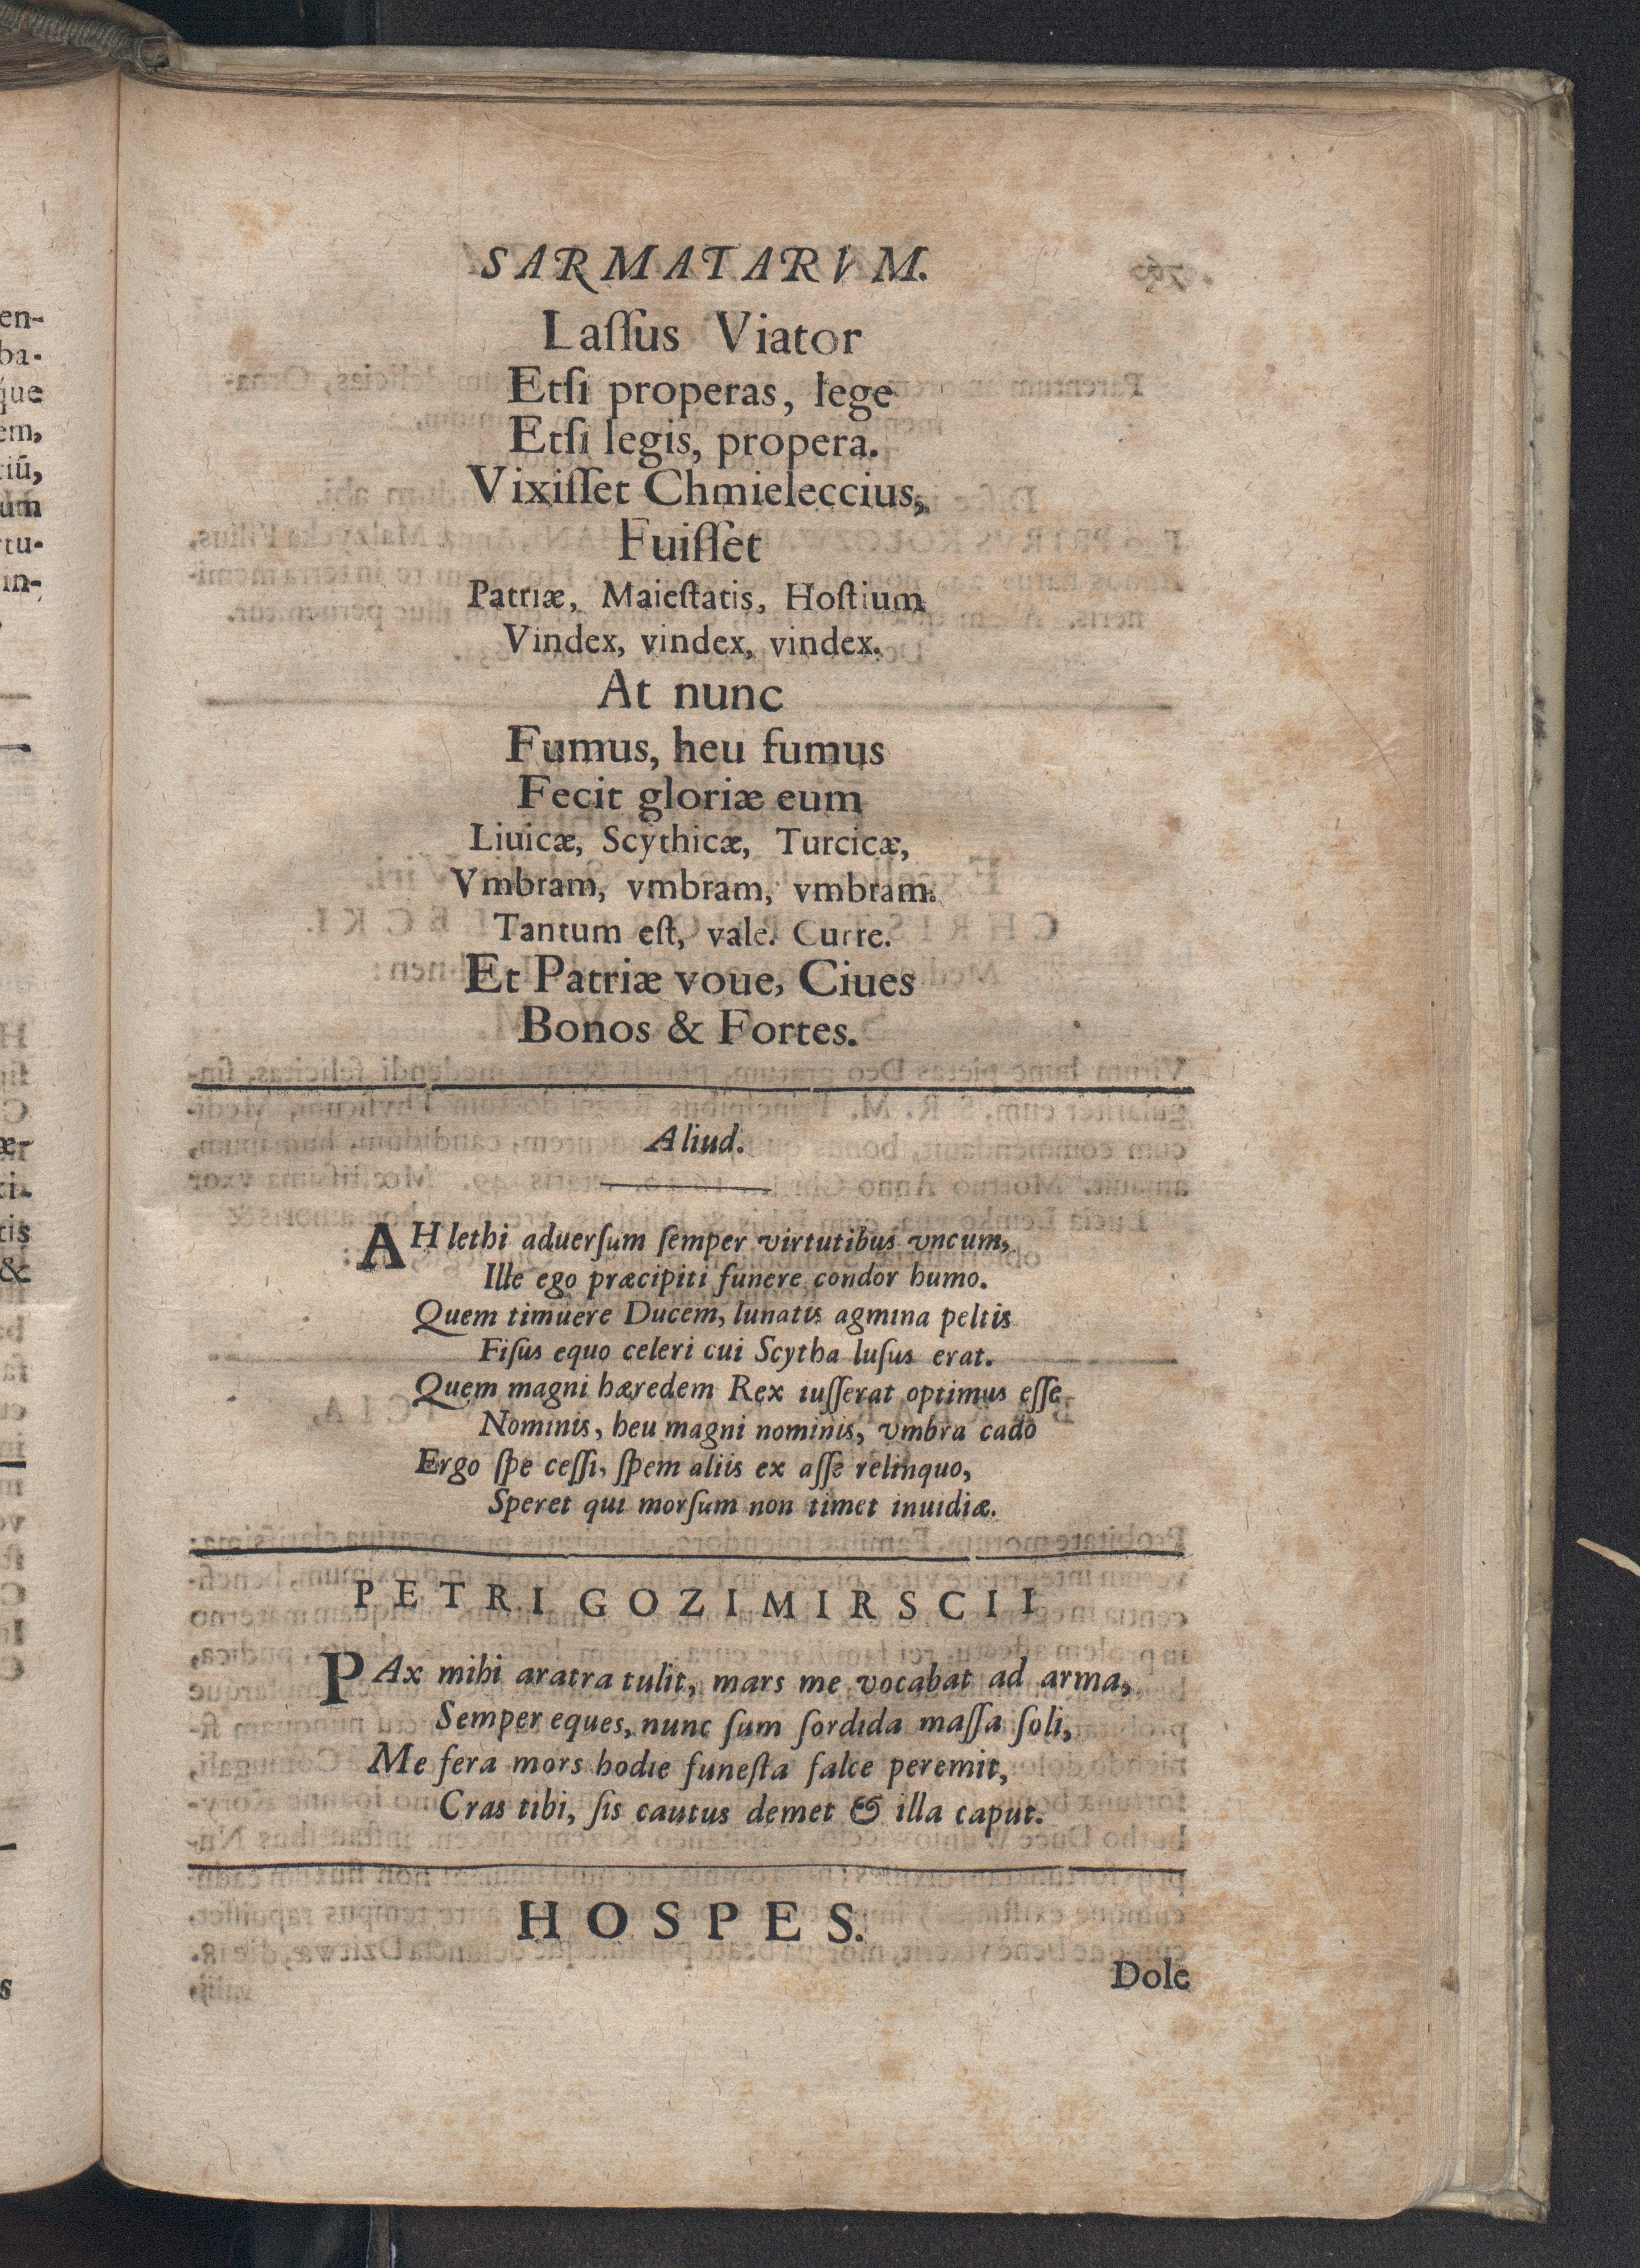 en-
ba-
que
em,
tiũ,
um
rtu-
in-
SARMATARVM.
Laſſus Viator
Etſi properas, lege
Etſi legis, propera.
Vixiſſet Chmieleccius,
Fuiſſet
Patriæ, Maieſtatis, Hoſtium
Vindex, vindex, vindex.
At nunc
Fumus, heu fumus
Fecit gloriæ eum
Liuicæ, Scythicæ, Turcicæ,
Vmbram, vmbram, vmbram.
Tantum eſt, vale. Curre.
Et Patriæ voue, Ciues
Bonos & Fortes.
Aliud.
AH lethi aduerſum ſemper virtutibus vncum,
Ille ego præcipiti funere condor humo.
Quem timuere Ducem, lunatis agmina peltis
Fiſus equo celeri cui Scytha luſus erat.
Quem magni hæredem Rex iuſſerat optimus eſſe
Nominis, heu magni nominis, vmbra cado
Ergo ſpe ceſſi, ſpem aliis ex aſſe relinquo,
Speret qui morſum non timet inuidiæ.
PETRI GOZIMIRSCII
PAx mihi aratra tulit, mars me vocabat ad arma,
Semper eques, nunc ſum ſordida maſſa ſoli,
Me fera mors hodie funeſta falce peremit,
Cras tibi, ſis cautus demet & illa caput.
HOSPES.
Dole